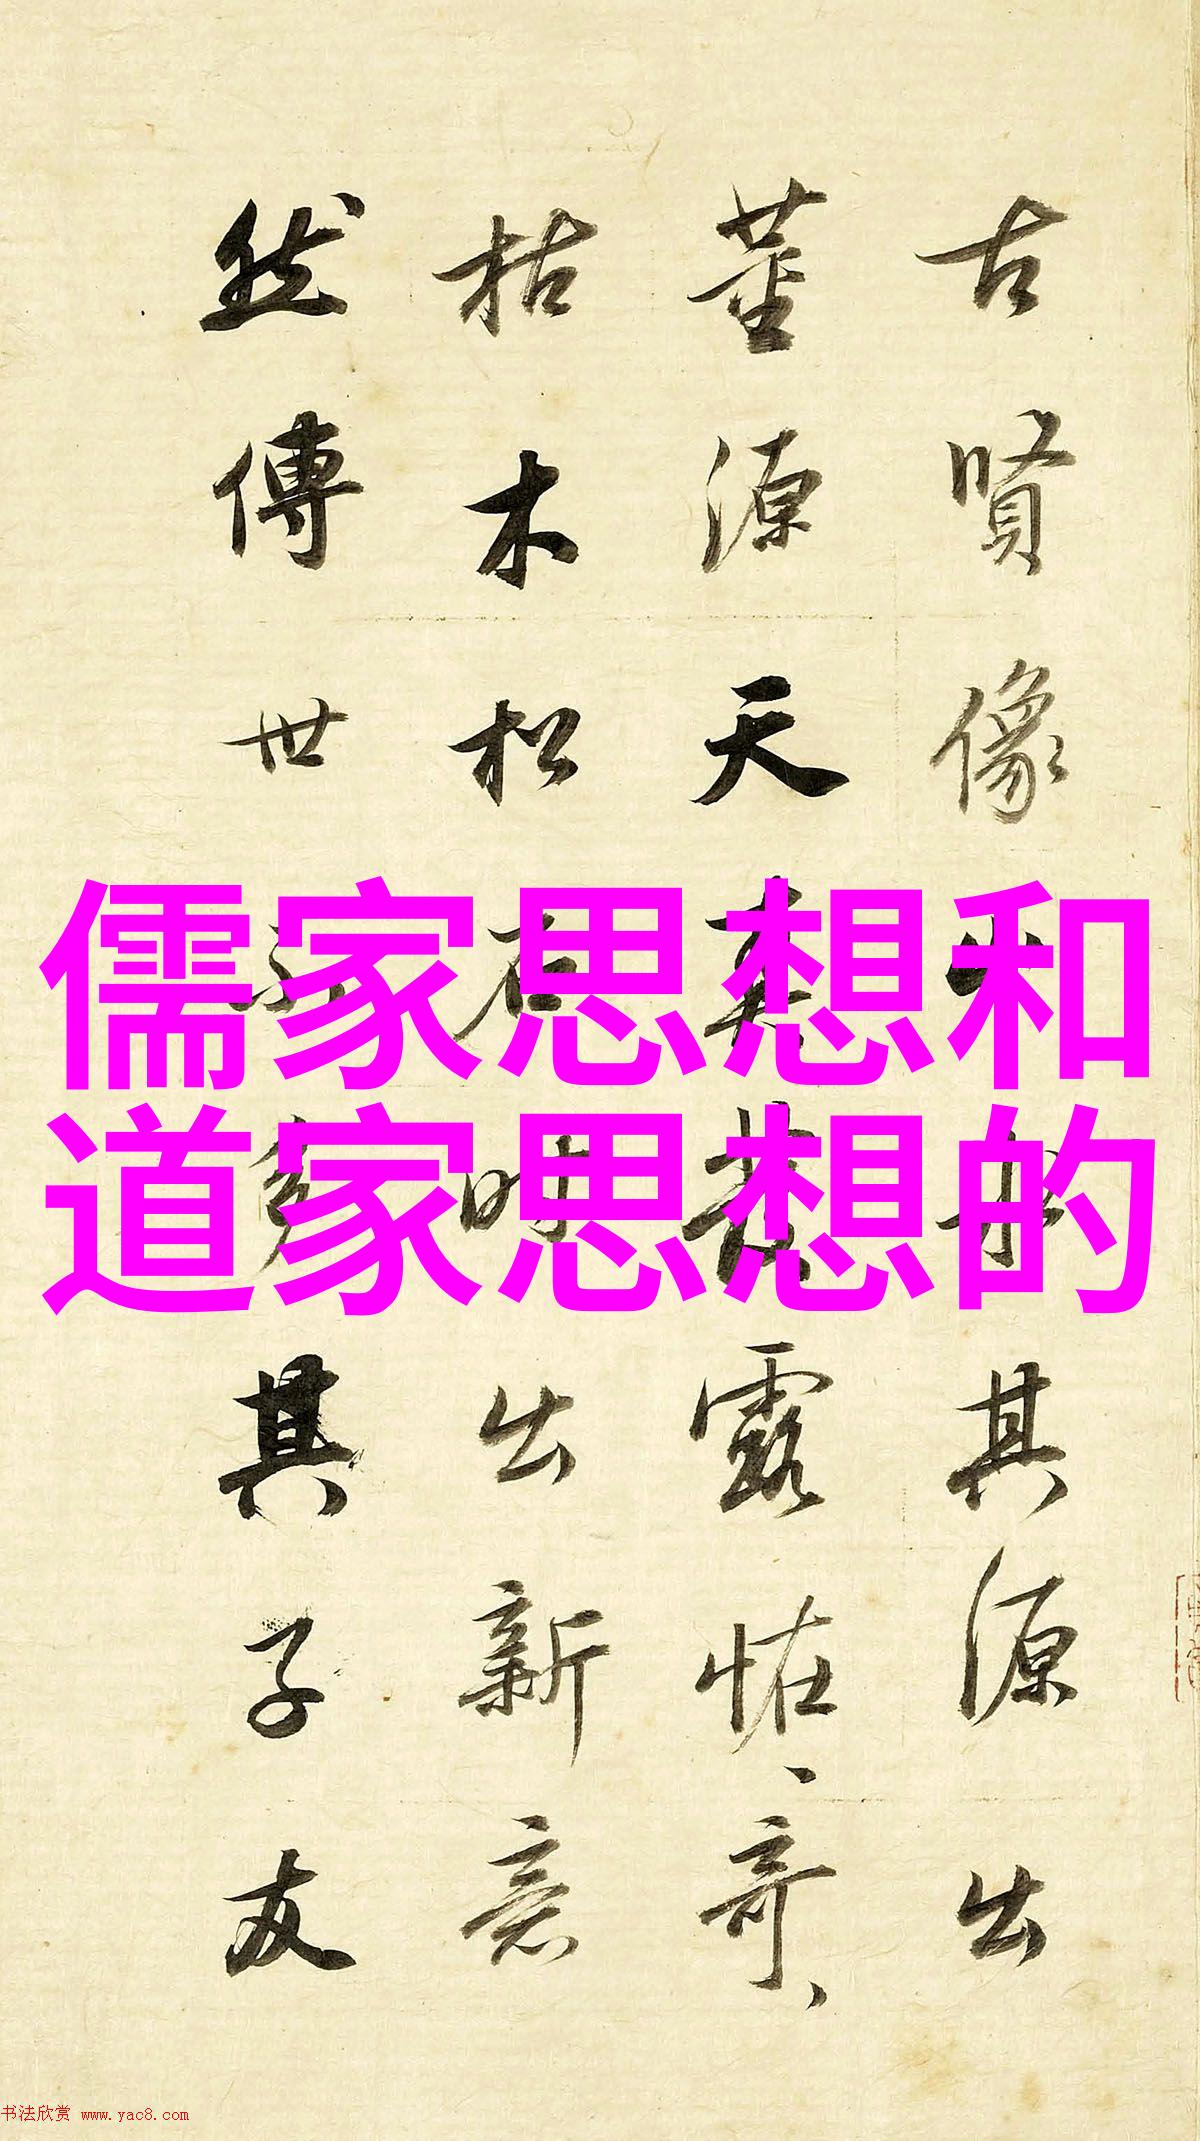 古贤像□□其源出
董源天真□露怪、奇、
枯木松石时出新意
然傳世不多其子友
儒家思想和
道家思想的
书法欣赏 www.yac8.com